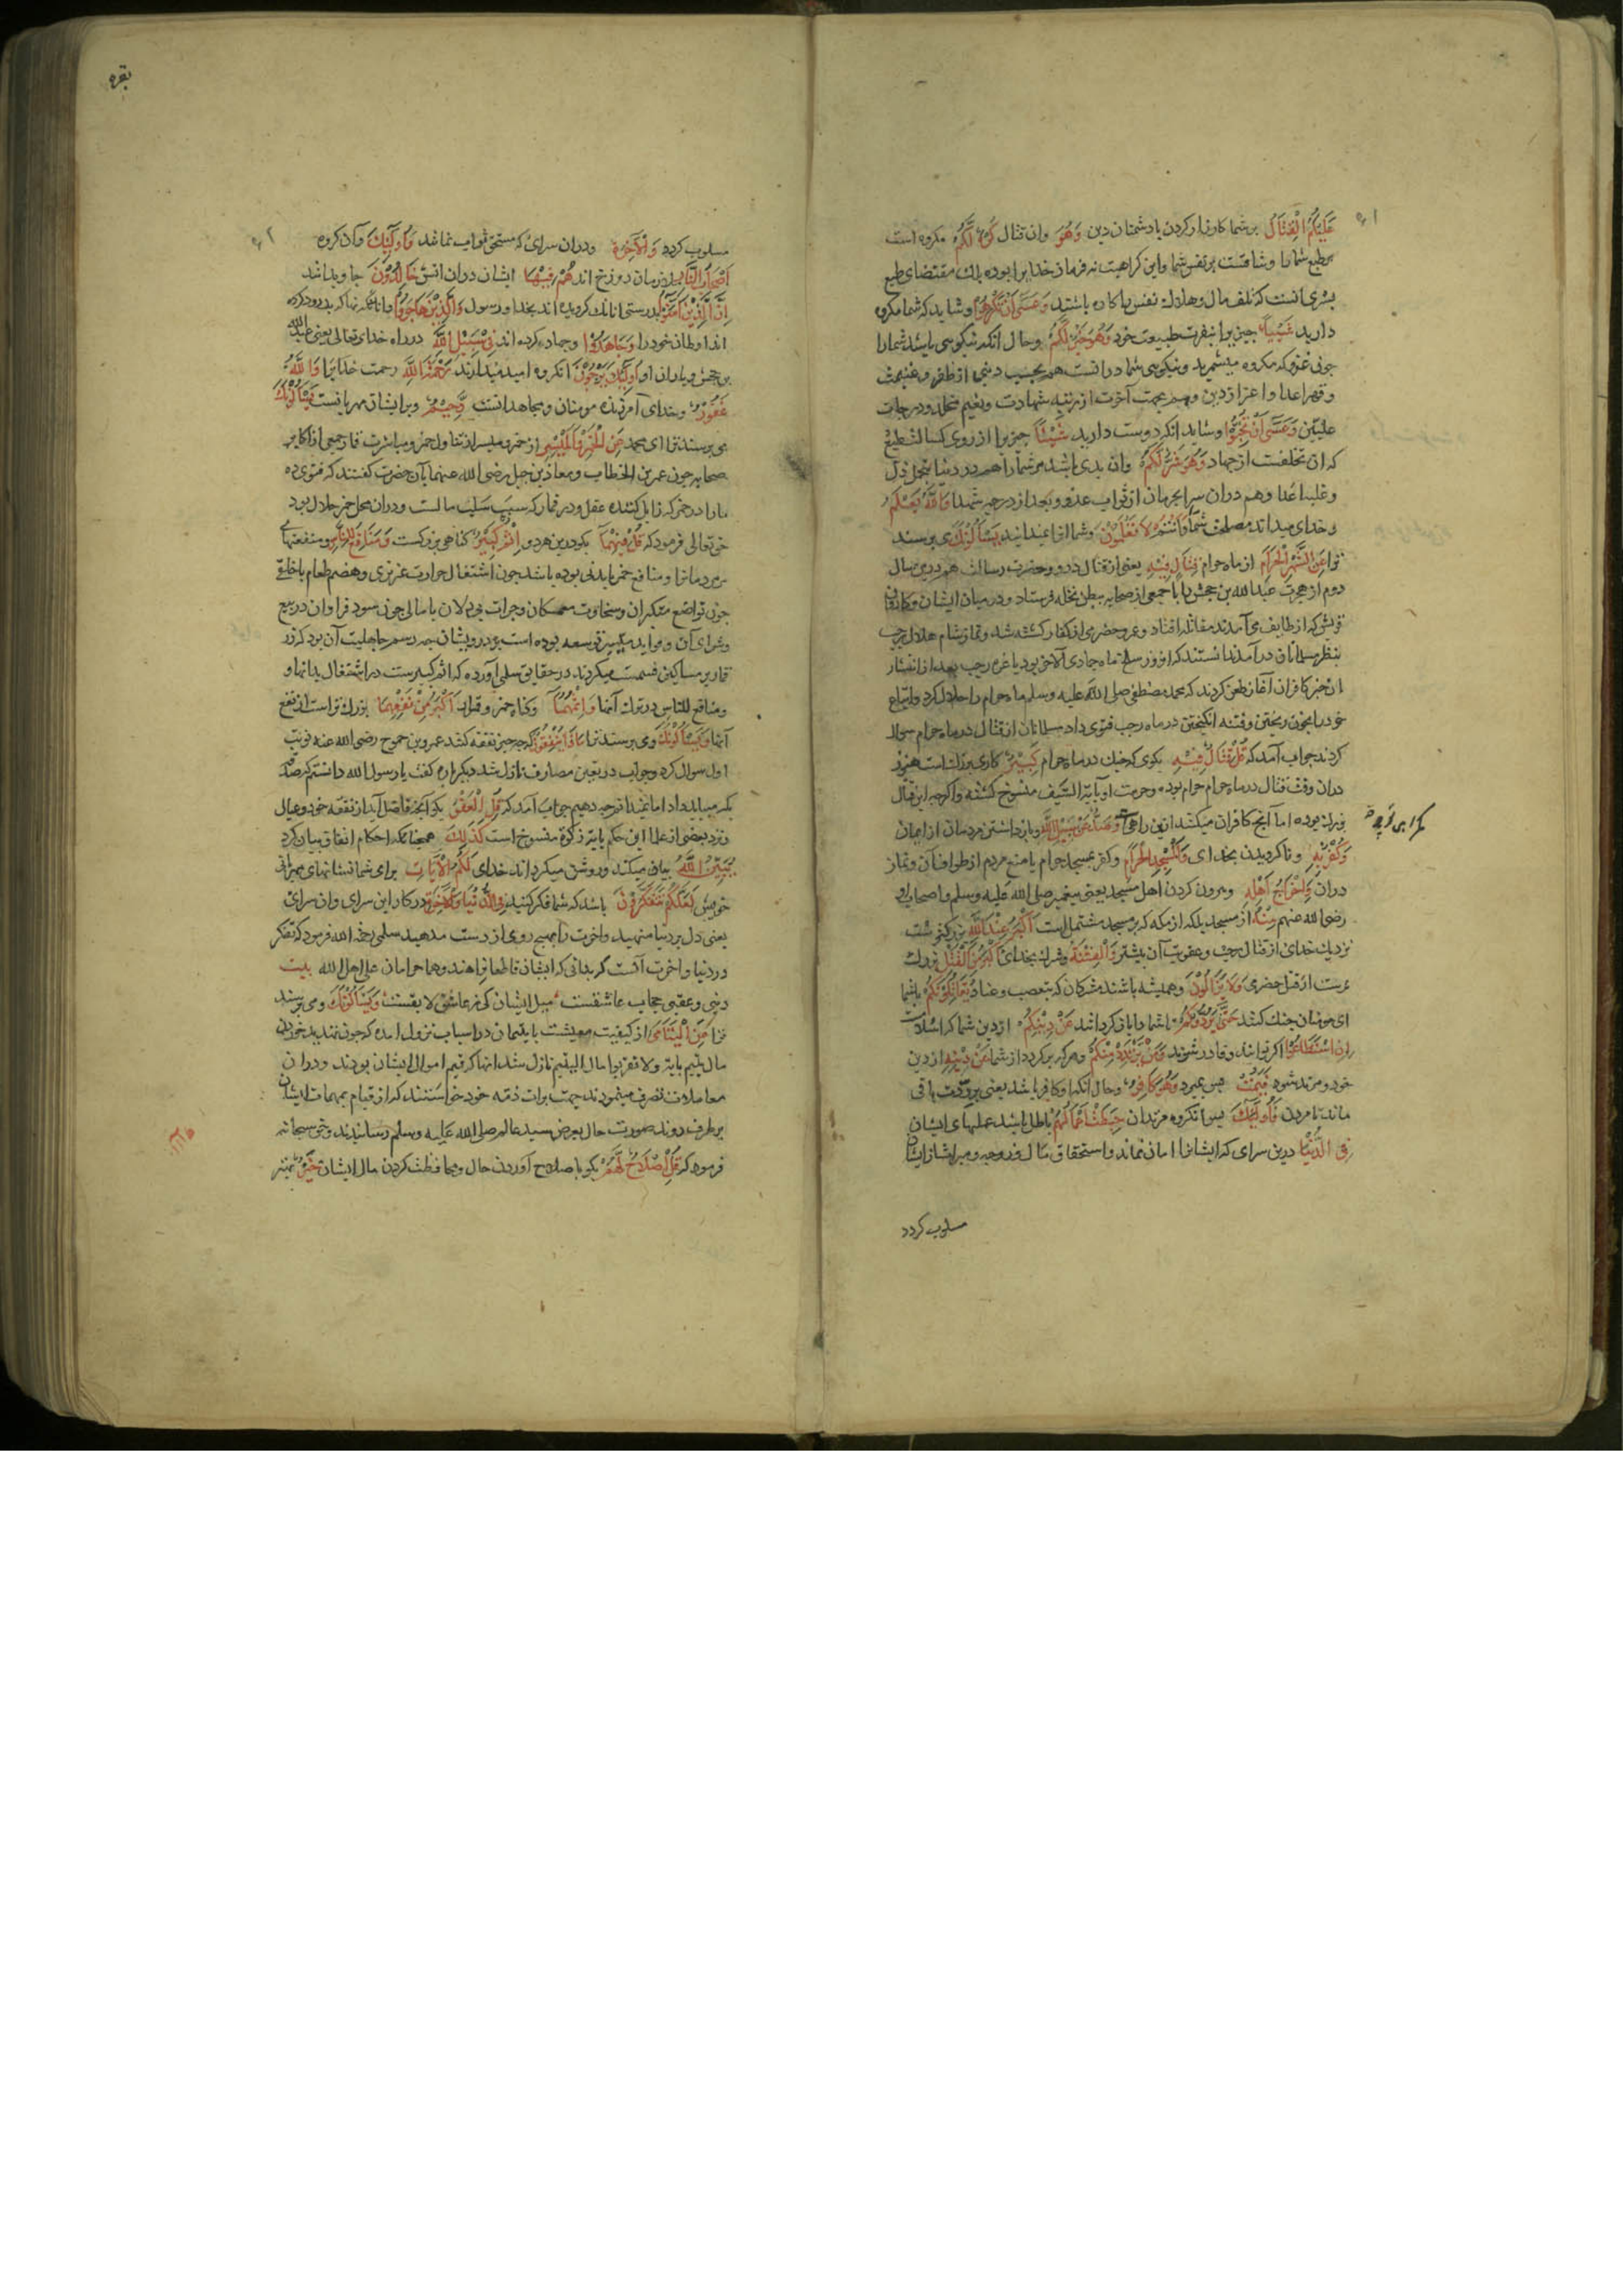 عَلَيْكُمُ الْقِتَالُ بر شما کارزار کردن با دشمنان دین وَهُوَ وان قتال كُرْهٌ لَكُمْ مکروه است
طبع شما را وشاقست بر نفس شما واین کراهیت نه فرمان خدایرا بوده بلک مقتضای طبع
بشری انست که تلف مال وهلاک نفس را کاره باشد وَعَسَى أَنْ تَكْرَهُوا وشاید که شما مکروه
دارید شَيْئًا چیزیرا بنفرت طبیعت خود وَهُوَ خَيْرٌ لَكُمْ وحال انکه نیکویی باشد شما را
چون غزو که مکروه میشمرید ونیکویی شما درانست هم بحسب دینی از ظفر وغنیمت
وقهر اعدا واعزاز دین وهم بجهت آخرت از رتبه شهادت ونعیم مخلد ودرجات
علیین وَعَسَى أَنْ تُحِبُّوا وشاید انکه دوست دارید شَيْئًا چیزیرا از روی کسالت طبع
که ان تخلفست از جهاد وَهُوَ شَرٌّ لَكُمْ وان بدی باشد مر شما را هم در دنیا بتحمل ذل
وغلبه اعدا وهم دران سرا بحرمان از ثواب غزو وبعد از درجه شهدا وَاللَّهُ يَعْلَمُ
وخدای میداند مصلحت شما وَأَنْتُمْ لَا تَعْلَمُونَ وشما انرا نمیدانید يَسْأَلُونَكَ می پرسند
ترا عَنِ الشَّهْرِ الْحَرَامِ از ماه حرام قِتَالٍ فِيهِ یعنی از قتال درو وحضرت رسالت هم درین سال
دوم از هجرت عبدالله بن جحش را با جمعی از صحابه ببطن نخله فرستاد ودر میان ایشان وکاروان
قریش که از طایف می آمدند مقاتله افتاد وعمرو حضرمی از کفار کشته شد ونماز شام هلال رجب
بنظر مسلمانان درآمد ندانستند که ان روز سلخ ماه جمادی الآخر بود یا غره رجب بعد از انتشار
ان خبر کافران آغاز طعن کردند که محمد مصطفی صلی الله علیه وسلم ماه حرام را حلال کرد واتباع
خود را بخون ریختن وفتنه انگیختن در ماه رجب فتوی داد مسلمانان از قتال در ماه حرام سوال
کردند جواب آمد که قُلْ قِتَالٌ فِيهِ بکوی که جنک در ماه حرام كَبِيرٌ کاری بزرکست هنوز
دران وقت قتال در ماه حرام حرام بوده وحرمت او بآیة السیف منسوخ کشته واکرچه این قتال
بزرک بوده اما آنچه کافران میکنند ازین راهی وَصَدٌّ عَنْ سَبِيلِ اللَّهِ وبازداشتن مردمان از ایمان
وَكُفْرٌ بِهِ وناکرویدن بخدای وَالْمَسْجِدِ الْحَرَامِ وکفر بمسجد حرام یا منع مردم از طواف آن ونماز
دران وَإِخْرَاجُ أَهْلِهِ وبیرون کردن اهل مسجد یعنی پیغمبر صلی الله علیه وسلم واصحاب او
رضی الله عنهم مِنْهُ از مسجد بلکه از مکه که بر مسجد مشتمل است أَكْبَرُ عِنْدَ اللَّهِ
نزدیک خدای از قتال رجب وعقوبت آن بیشتر وَالْفِتْنَةُ وشرک بخدای أَكْبَرُ مِنَ الْقَتْلِ بزرک
ترست از قتل حضرمی وَلَا يَزَالُونَ وهمیشه باشند مشرکان که بتعصب وعناد يُقَاتِلُونَكُمْ با شما
ای مومنان جنک کنند حَتَّى يَرُدُّوكُمْ تا شما را باز کردانند عَنْ دِينِكُمْ از دین شما که اسلامست
إِنِ اسْتَطَاعُوا اکر توانند وقادر شوند وَمَنْ يَرْتَدِدْ مِنْكُمْ وهر که برکردد از شما عَنْ دِينِهِ از دین
خود ومرتد شود فَيَمُتْ پس بمیرد وَهُوَ كَافِرٌ وحال انکه او کافر باشد یعنی بر ردت باقی
ماند تا مردن فَأُولَئِكَ پس انکروه مرتدان حَبِطَتْ أَعْمَالُهُمْ باطل باشد عملهای ایشان
فِي الدُّنْيَا درین سرای که ایشانرا امان نماند واستحقاق مال وزوجه ومیراث از ایشان
مسلوب کردد
بقره
مسلوب کردد وَالْآخِرَةِ ودران سرای که مستحق ثواب نمانند وَأُولَئِكَ وآن کروه
أَصْحَابُ النَّارِ ملازمان دوزخ اند هُمْ فِيهَا ایشان دران اتش خَالِدُونَ جاوید اند
إِنَّ الَّذِينَ آمَنُوا بدرستی انانک کرویده اند بخدا ورسول وَالَّذِينَ هَاجَرُوا وانانکه بدرود کرده
اند اوطان خود را وَجَاهَدُوا وجهاد کرده اند فِي سَبِيلِ اللَّهِ در راه خدای تعالی یعنی عبدالله
بن جحش ویاران او أُولَئِكَ يَرْجُونَ انکروه امید میدارند رَحْمَتَ اللَّهِ رحمت خدایرا وَاللَّهُ
غَفُورٌ وخدای آمرزنده مومنان ومجاهدانست رَحِيمٌ وبر ایشان مهربانست يَسْأَلُونَكَ
می پرسند ترا ای محمد عَنِ الْخَمْرِ وَالْمَيْسِرِ از خمر ومیسر از تناول خمر ومباشرت قمار جمعی از اکابر
صحابه چون عمر بن الخطاب ومعاذ بن جبل رضی الله عنهما بآن حضرت کفتند که فتوی ده
ما را در خمر که زایل کننده عقل ودر قمار که سبب سلب مالست ودران محل خمر حلال بود
حق تعالی فرمود که قُلْ فِيهِمَا بکو درین هر دو إِثْمٌ كَبِيرٌ کناهی بزرکست وَمَنَافِعُ لِلنَّاسِ ومنفعتهای
مردمانرا ومنافع خمر یا بدنی بوده باشد چون اشتعال حرارت غریزی وهضم طعام یا خلقی
چون تواضع متکبران وسخاوت ممسکان وجرات بیدلان یا مالی چون سود فراوان در بیع
وشرای آن وفواید میسر توسعه بوده است بر درویشان چه رسم جاهلیت آن بود که زر
قمار بر مساکین قسمت میکردند در حقایق سلمی آورده که اثم کبیرست در اشتغال بدانها و
ومنافع للناس در ترک آنها وَإِثْمُهُمَا وکناه خمر وقمار أَكْبَرُ مِنْ نَفْعِهِمَا بزرک تراست از نفع
آنها وَيَسْأَلُونَكَ ومی پرسند ترا مَاذَا يُنْفِقُونَ که چه چیز نفقه کنند عمرو بن جموح رضی الله عنه نوبت
اول سوال کرد وجواب در تعیین مصارف نازل شد دیکر باره کفت یا رسول الله دانستم که صدقه
بکه میباید داد اما نمیدانم چه دهیم جواب آمد که قُلِ الْعَفْوَ بکو آنچه فاضل آید از نفقه خود وعیال
ونزد بعضی از علما این حکم بآیة زکوة منسوخ است كَذَلِكَ همچنانکه احکام انفاق بیان کرد
يُبَيِّنُ اللَّهُ بیان میکند وروشن میکرداند خدای لَكُمُ الْآيَاتِ برای شما نشانهای مهربانی
خویش لَعَلَّكُمْ تَتَفَكَّرُونَ باشد که شما فکر کنید فِي الدُّنْيَا وَالْآخِرَةِ در کار این سرای وان سرای
یعنی دل بر دنیا منهید واخرت را بهیچ روی از دست مدهید سلمی رحمه الله فرمود که تفکر
در دنیا واخرت آنست که بدانی که ایشان قاطعان راهند وهما حرامان علی اهل الله بیت
دینی وعقبی حجاب عاشقست میل ایشان کی ز عاشق لایقست وَيَسْأَلُونَكَ ومی پرسند
ترا عَنِ الْيَتَامَى از کیفیت معیشت با یتیمان در اسباب نزول امده که چون تهدید خوردن
مال یتیم بآیة ولا تقربوا مال الیتیم نازل شد انها که قیم اموال ایشان بودند ودران
معاملات تصرف مینمودند جهت برات ذمه خود خواستند که از قیام بمهمات ایشان
بر طرف روند صورت حال بعرض سید عالم صلی الله علیه وسلم رسانیدند وحق سبحانه
فرمود که قُلْ إِصْلَاحٌ لَهُمْ بکو باصلاح آوردن حال ومحافظت کردن مال ایشان خَيْرٌ بهتر